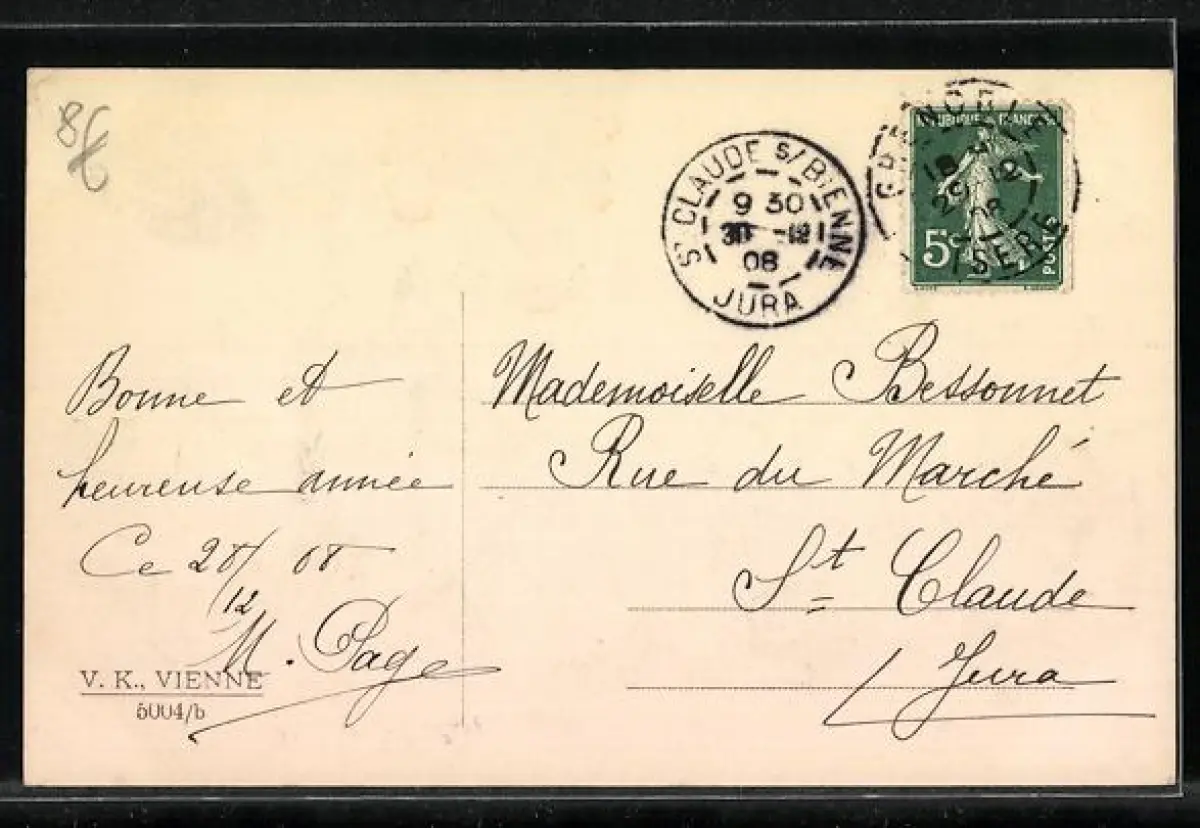 8€
ST CLAUDE S/BIENNE
9 30
30 -12
08
JURA
GRENOBLE
18
29 12
08
ISERE
REPUBLIQUE FRANÇAISE
5c
POSTES
Bonne et
heureuse année
Ce 28/12 08
M. Page
V. K., VIENNE
5004/b
Mademoiselle Bessonnet
Rue du Marché
St Claude
Jura